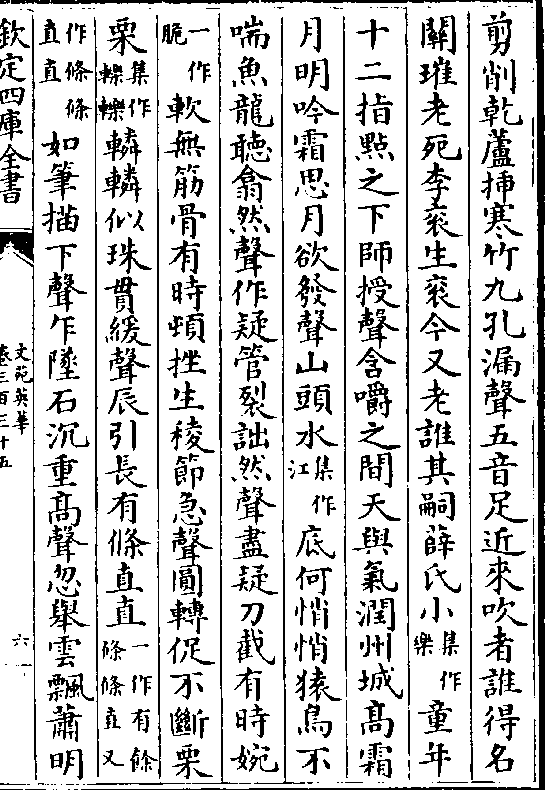 剪削乾蘆揷寒竹九孔漏聲五音足近來吹者誰得名
關璀老死李衮生衮今又老誰其嗣薛氏小集作樂童年
十二指點之下師授聲含嚼之間天與氣潤州城髙霜
月明吟霜思月欲發聲山頭水集作江底何悄悄猿鳥不
喘魚龍聽翕然聲作疑管裂詘然聲盡疑刀截有時婉
一作脆軟無筋骨有時頓挫生稜節急聲圓轉促不斷栗
栗集作轢轢轔轔似珠貫緩聲辰引長有條直直一作有餘條條直又
作條條直直如筆描下聲乍墜石沉重髙聲忽舉雲飄蕭明
欽定四庫全書
文苑英華
卷三百三十五
六